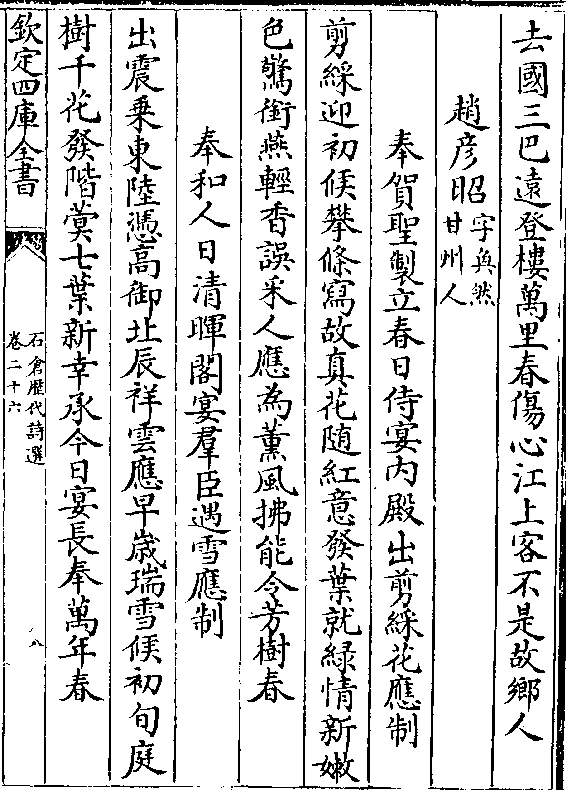 去國三巴遠登樓萬里春傷心江上客不是故鄉人
趙彦昭字奐然
甘州人
奉賀聖製立春日侍宴内殿出剪綵花應制
剪綵迎初候攀條寫故真花随紅意發葉就緑情新嫩
色驚銜燕輕香誤采人應為薫風拂能令芳樹春
奉和人日清暉閣宴羣臣遇雪應制
出震乗東陸憑高御北辰祥雲應早嵗瑞雪候初旬庭
樹千花發階蓂七葉新幸承今日宴長奉萬年春
欽定四庫全書
石倉歴代詩選
卷二十六
八